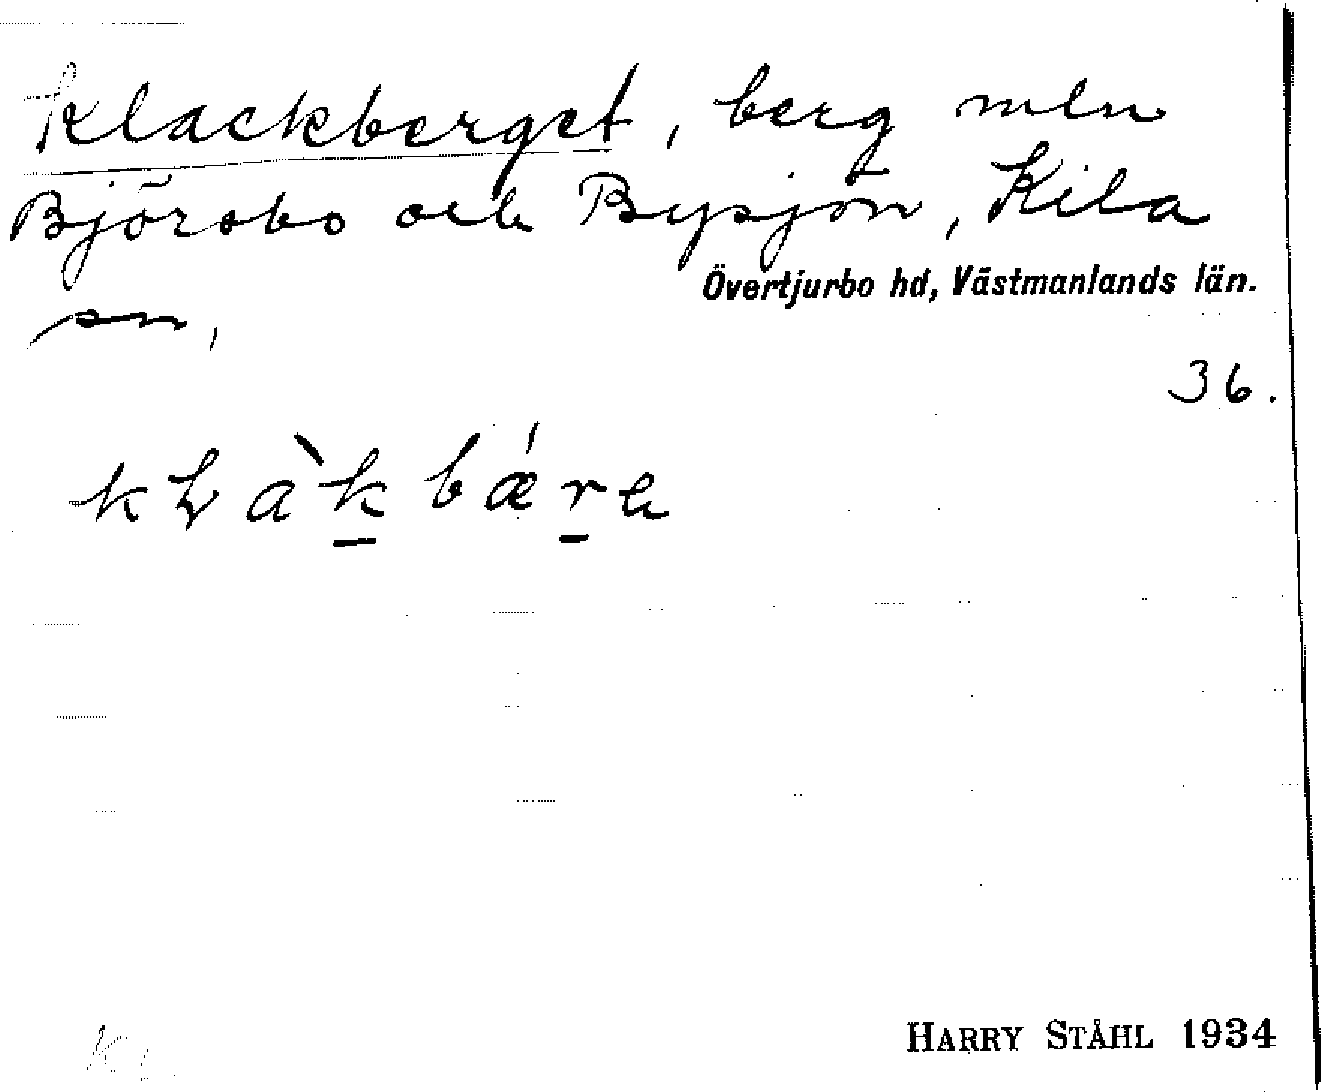 Klackberget, berg mln
Björsbo och Bysjön, Kila
Övertjurbo hd, Västmanlands län.
sn,
36.
kɫàk bǽra
HARRY STÅHL 1934